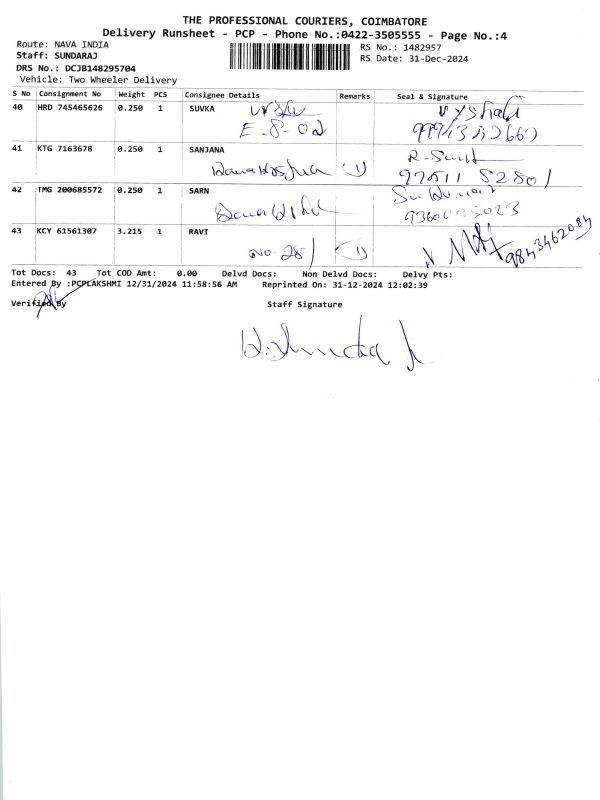 THE PROFESSIONAL COURIERS, COIMBATORE
Delivery Runsheet - PCP - Phone No.:0422-3505555 - Page No.:4
Route: NAVA INDIA
RS No.: 1482957
Staff: SUNDARAJ
RS Date: 31-Dec-2024
DRS No.: DCJB148295704
Vehicle: Two Wheeler Delivery
S No Consignment No Weight PCS Consignee Details Remarks Seal & Signature
40 HRD 745465626 0.250 1 SUVKA
E-8-02
41 KTG 7163678 0.250 1 SANJANA
97511 52801
42 TMG 200685572 0.250 1 SARN
9360035023
43 KCY 61561307 3.215 1 RAVI
No. 281
9843462084
Tot Docs: 43 Tot COD Amt: 0.00 Delvd Docs: Non Delvd Docs: Delvy Pts:
Entered By :PCPLAKSHMI 12/31/2024 11:58:56 AM Reprinted On: 31-12-2024 12:02:39
Verified By Staff Signature